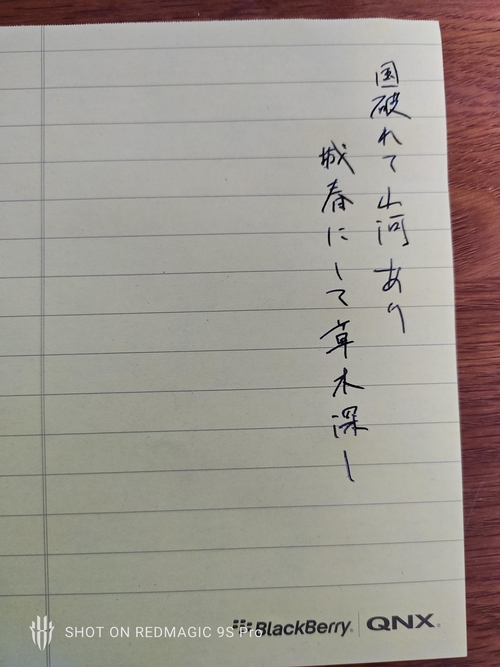 国破れて山河あり
城春にして草木深し
BlackBerry | QNX.
SHOT ON REDMAGIC 9S Pro